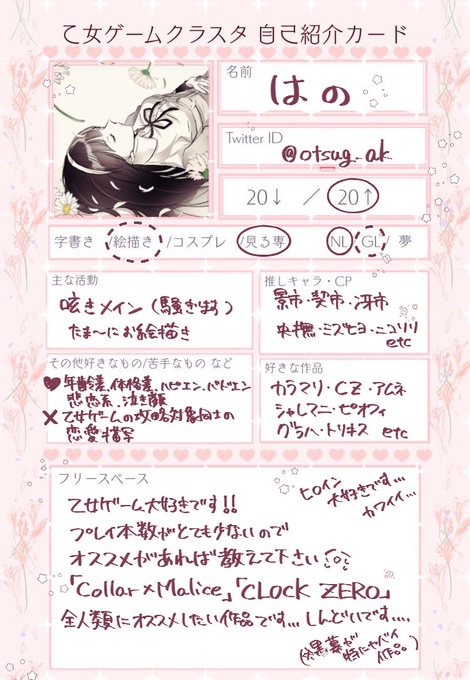 乙女ゲームクラスタ 自己紹介カード
名前
はの
Twitter ID
@otsug_ak
20↓ / 20↑
字書き /絵描き /コスプレ /見る専 NL GL / 夢
主な活動
呟きメイン(騒ぎます)
たま〜にお絵描き
推しキャラ・CP
景市・契市・冴市
央撫・ミズヒヨ・ニコリリ
etc
その他好きなもの/苦手なもの など
♥年齢差、体格差、ハピエン、バドエン
悲恋系、泣き顔
×乙女ゲームの攻略対象同士の
恋愛描写
好きな作品
カラマリ・CZ・アムネ
シャレマニ・ピオフィ
グラハ・トリキス etc
フリースペース
ヒロイン
大好きです…
カワイイ…
乙女ゲーム大好きです!!
プレイ本数がとても少ないので
オススメがあれば教えて下さい
「Collar×Malice」「CLOCK ZERO」
全人類にオススメしたい作品です…しんどいです….
(黒幕が
特にヤバイ
作品)